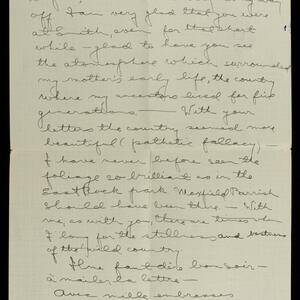 off. I am very glad that you were
at Smith, even for that short
while – glad to have you see
the atmosphere which surrounded
my mother's early life, the country
where my ancestors lived for five
generations — With your
letters the country seemed more
beautiful (pathetic fallacy) —
I have never before seen the
foliage so brilliant as in the
East Rock park Maxfield Parrish
should have been there – With
me, as with you, there are times when
I long for the stillness and
of the wild country.
Il me faut dire bon soir –
à mailer la lettre –
Avec mille embrasses